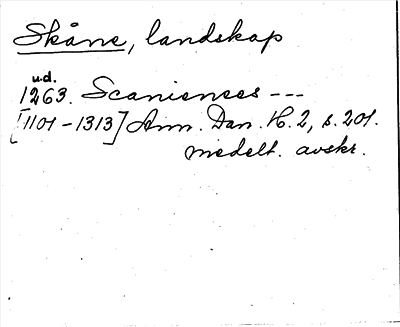 Skåne, landskap
u.d.
1263. Scanienses ---
[1101-1313] Ann. Dan. H. 2, s. 201.
medelt. avskr.